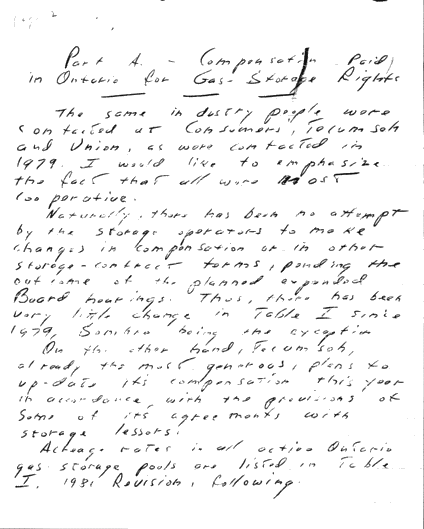 Page 2
Part A. - Compensation Paid
in Ontario for Gas-Storage Rights
The same industry people were
contacted at Consumers, Tecumseh
and Union, as were contacted in
1979. I would like to emphasize
the fact that all were most
cooperative.
Naturally, there has been no attempt
by the storage operators to make
changes in compensation or in other
storage-contract terms, pending the
outcome of the planned expanded
Board hearings. Thus, there has been
very little change in Table I since
1979, Sombra being the exception
On the other hand, Tecumseh,
already the most generous, plans to
up-date its compensation this year
in accordance, with the provisions of
some of its agreements with
storage lessors.
Acreage rates in all active Ontario
gas storage pools are listed in Table
I. 1981 Revision, following.